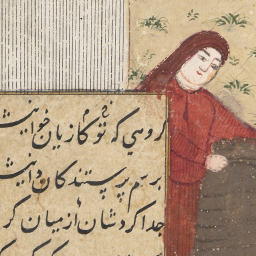 گروهی که تو کازیان خوانیش
برسم پرستندگان دانیش
جدا کردشان از میان گر